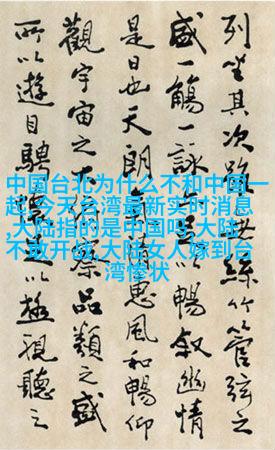 中国台北为什么不和中国一
起,今天台湾最新实时消息
,大陆指的是中国吗,大陆
不敢开战,大陆女人嫁到台
湾惨状
列坐其次雖無絲竹管弦之
盛一觴一詠亦足以暢叙幽情
是日也天朗氣清惠風和暢仰
觀宇宙之大俯察品類之盛
所以遊目騁懷足以極視聽之